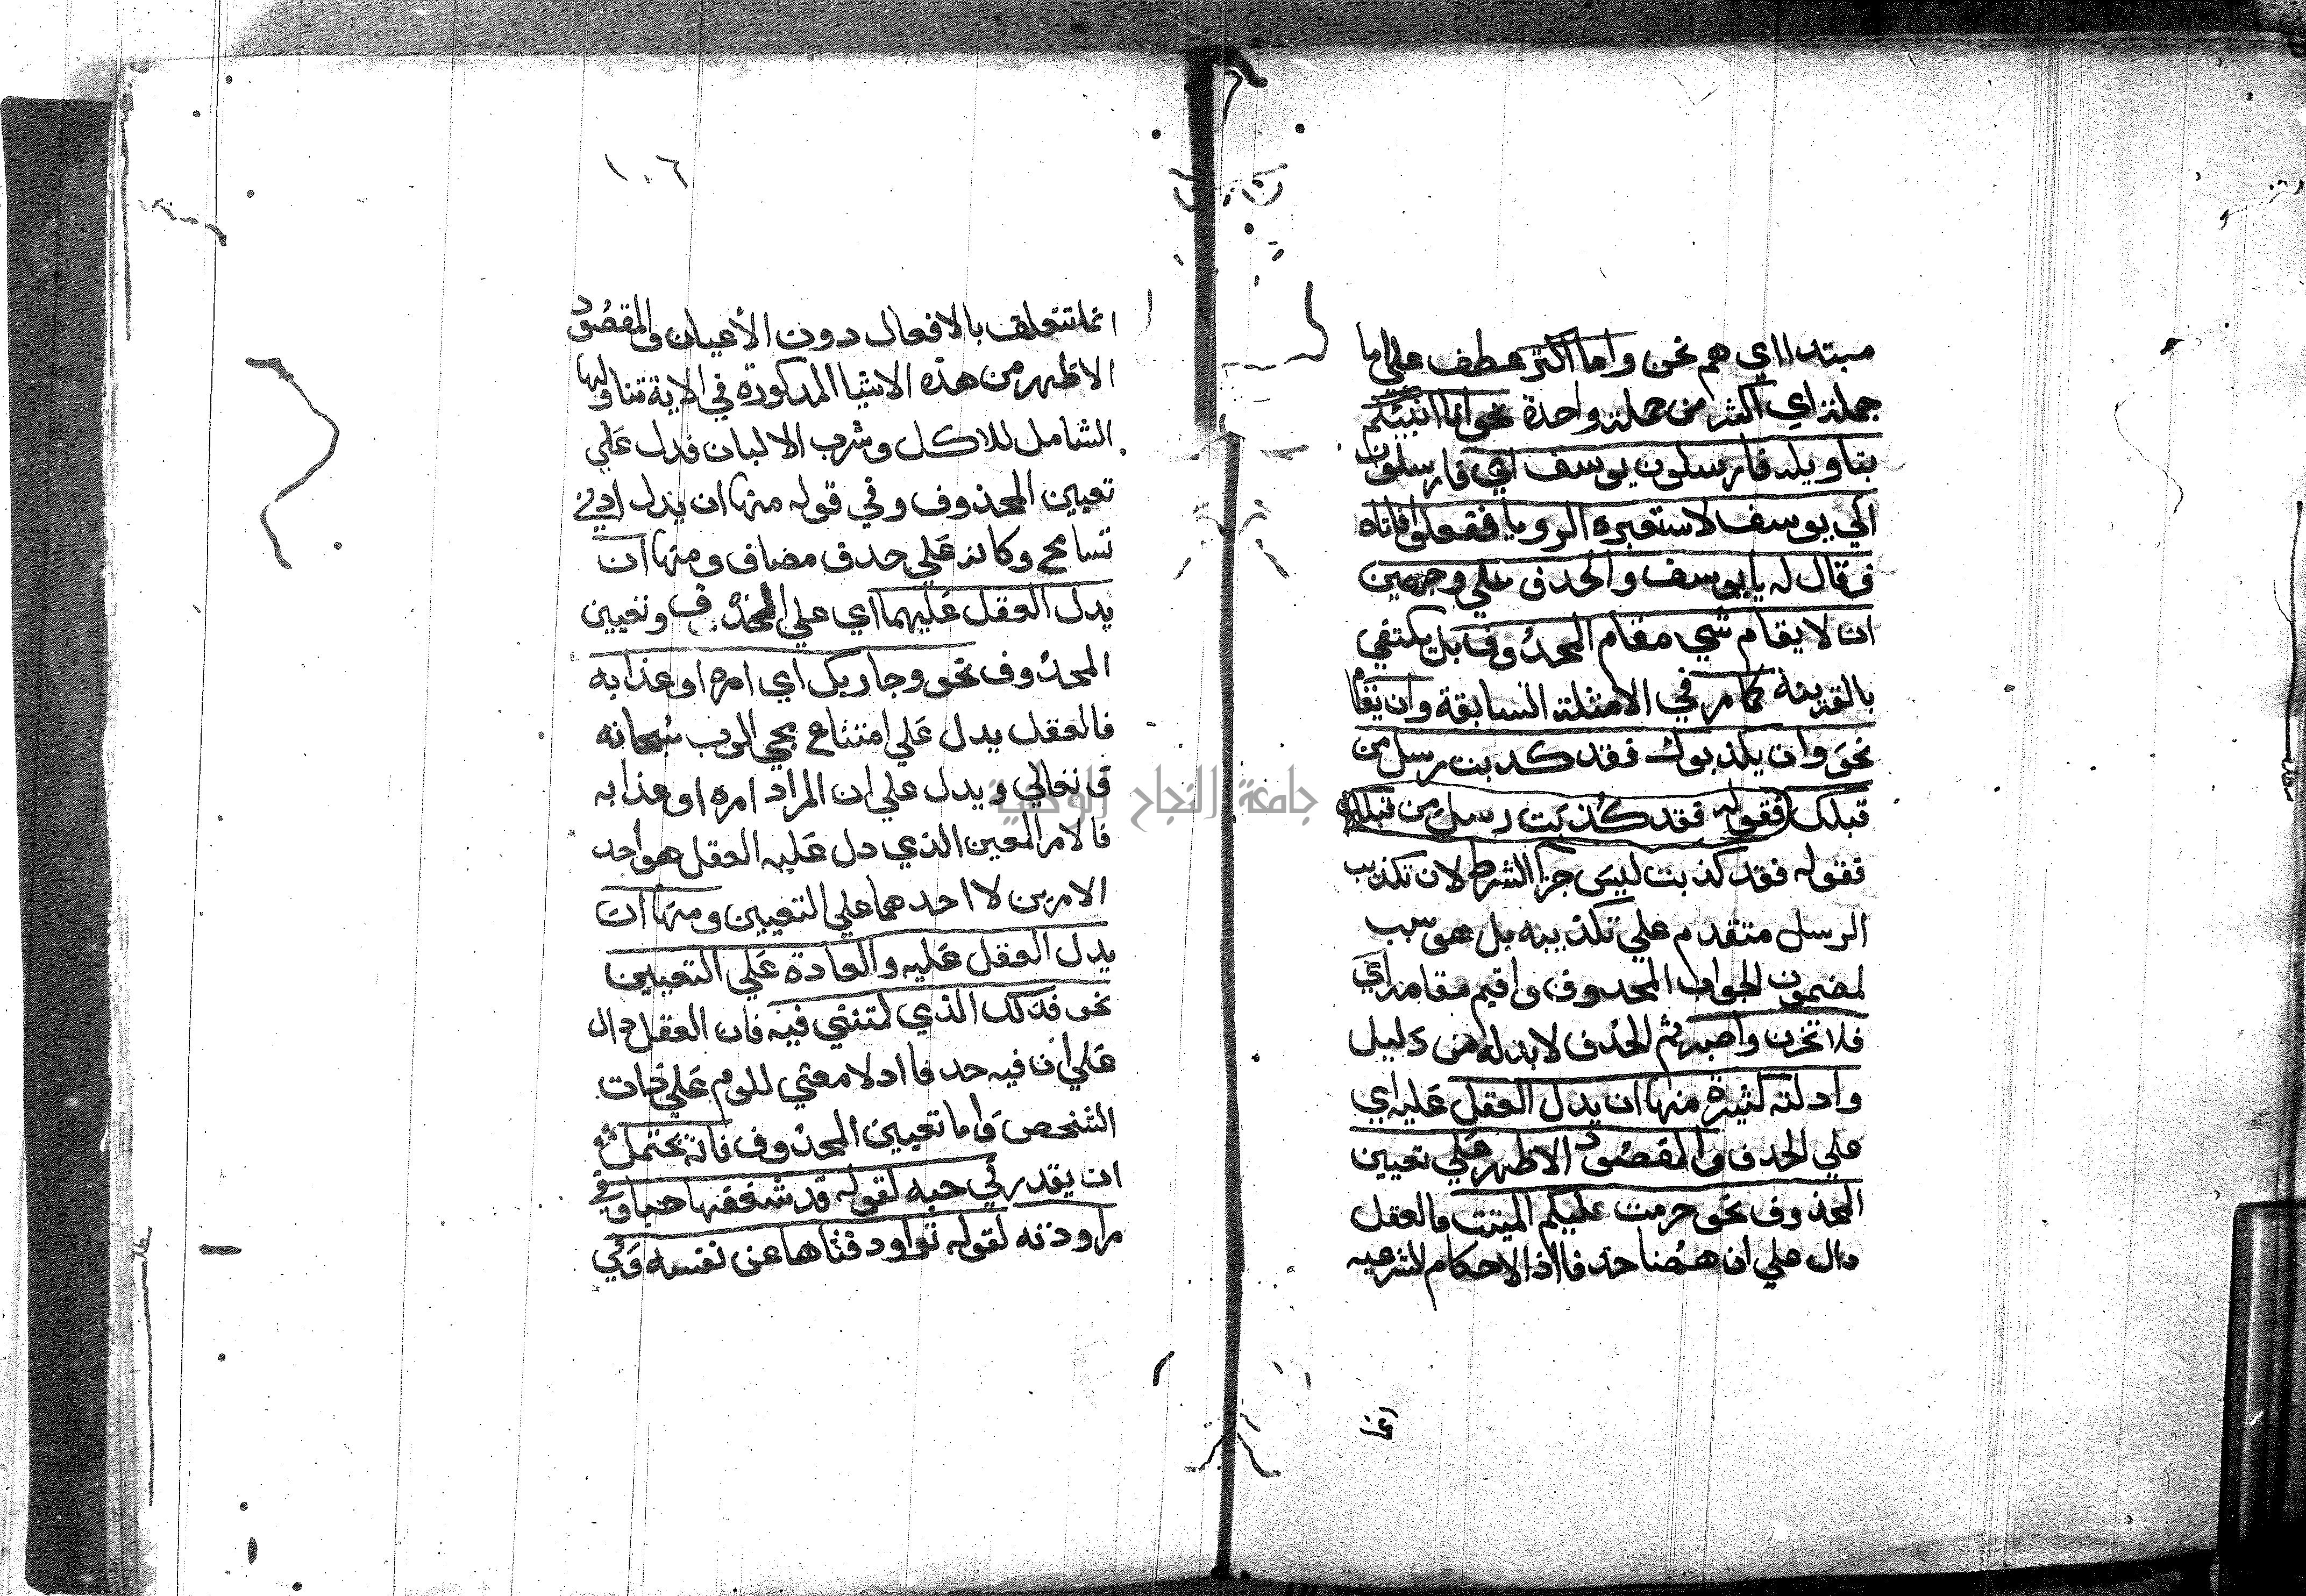 مبتدا اي هم نحن واما اكثر عطف علي اما
جملة اي اكثر من جملة واحدة نحو انا انبيئكم
بتاويله فارسلون يوسف اي فارسلون
الي يوسف لاستعبره الرويا ففعلوا فاتاه
فقال له يا يوسف والحذف علي وجهين
ان لا يقام شي مقام المحذوف بل يكتفي
بالقرينة كما مر في الامثلة السابقة وان يقام
نحو وان يكذبوك فقد كذبت رسل من
قبلك فقوله فقد كذبت رسل من قبلك
فقوله فقد كذبت ليس جزا الشرط لان تكذيب
الرسل متقدم علي تكذيبه بل هو سبب
لمضمون الجواب المحدوف واقيم مقامه اي
فلا تحزن واصبر ثم الحذف لا بد له من دليل
وادلته كثيرة منها ان يدل العقل عليه اي
علي الحدف والمقصود الاظهر علي تعيين
المحذوف نحو حرمت عليكم الميتت فالعقل
دال علي ان هضنا حذفا اذ الاحكام الشرعيه
انما
١٠٦
انما تتعلق بالافعال دون الأعيان والمقصود
الاظهر من هذه الاشيا المدكورة في الاية تناولها
الشامل للاكل وشرب الالبان فدل علي
تعيين المحذوف وفي قوله منها ان يدل ادني
تسامح وكانه علي حدف مضاف ومنها ان
يدل العقل عليهما اي علي المحذوف وتعيين
المحذوف نحو وجا ربك اي امره او عذابه
فالعقل يدل علي امتناع مجي الرب سبحانه
وتعالي ويدل علي ان المراد امره او عذابه
فالامر المعين الذي دل عليه العقل هو احد
الامرين لا احدهما علي التعيين ومنها ان
يدل العقل عليه والعادة علي التعيين
نحو فذلك الذي لمتنني فيه فان العقل دال
علي ان فيه حدفا اد لا معني للوم علي ذات
الشخص واما تعيين المحذوف فانه يحتمل
ان يقدر في حبه لقوله قد شغفها حبا وفي
مراودته لقوله تراود فتاها عن نفسه وفي
جامعة النجاح الوطنية